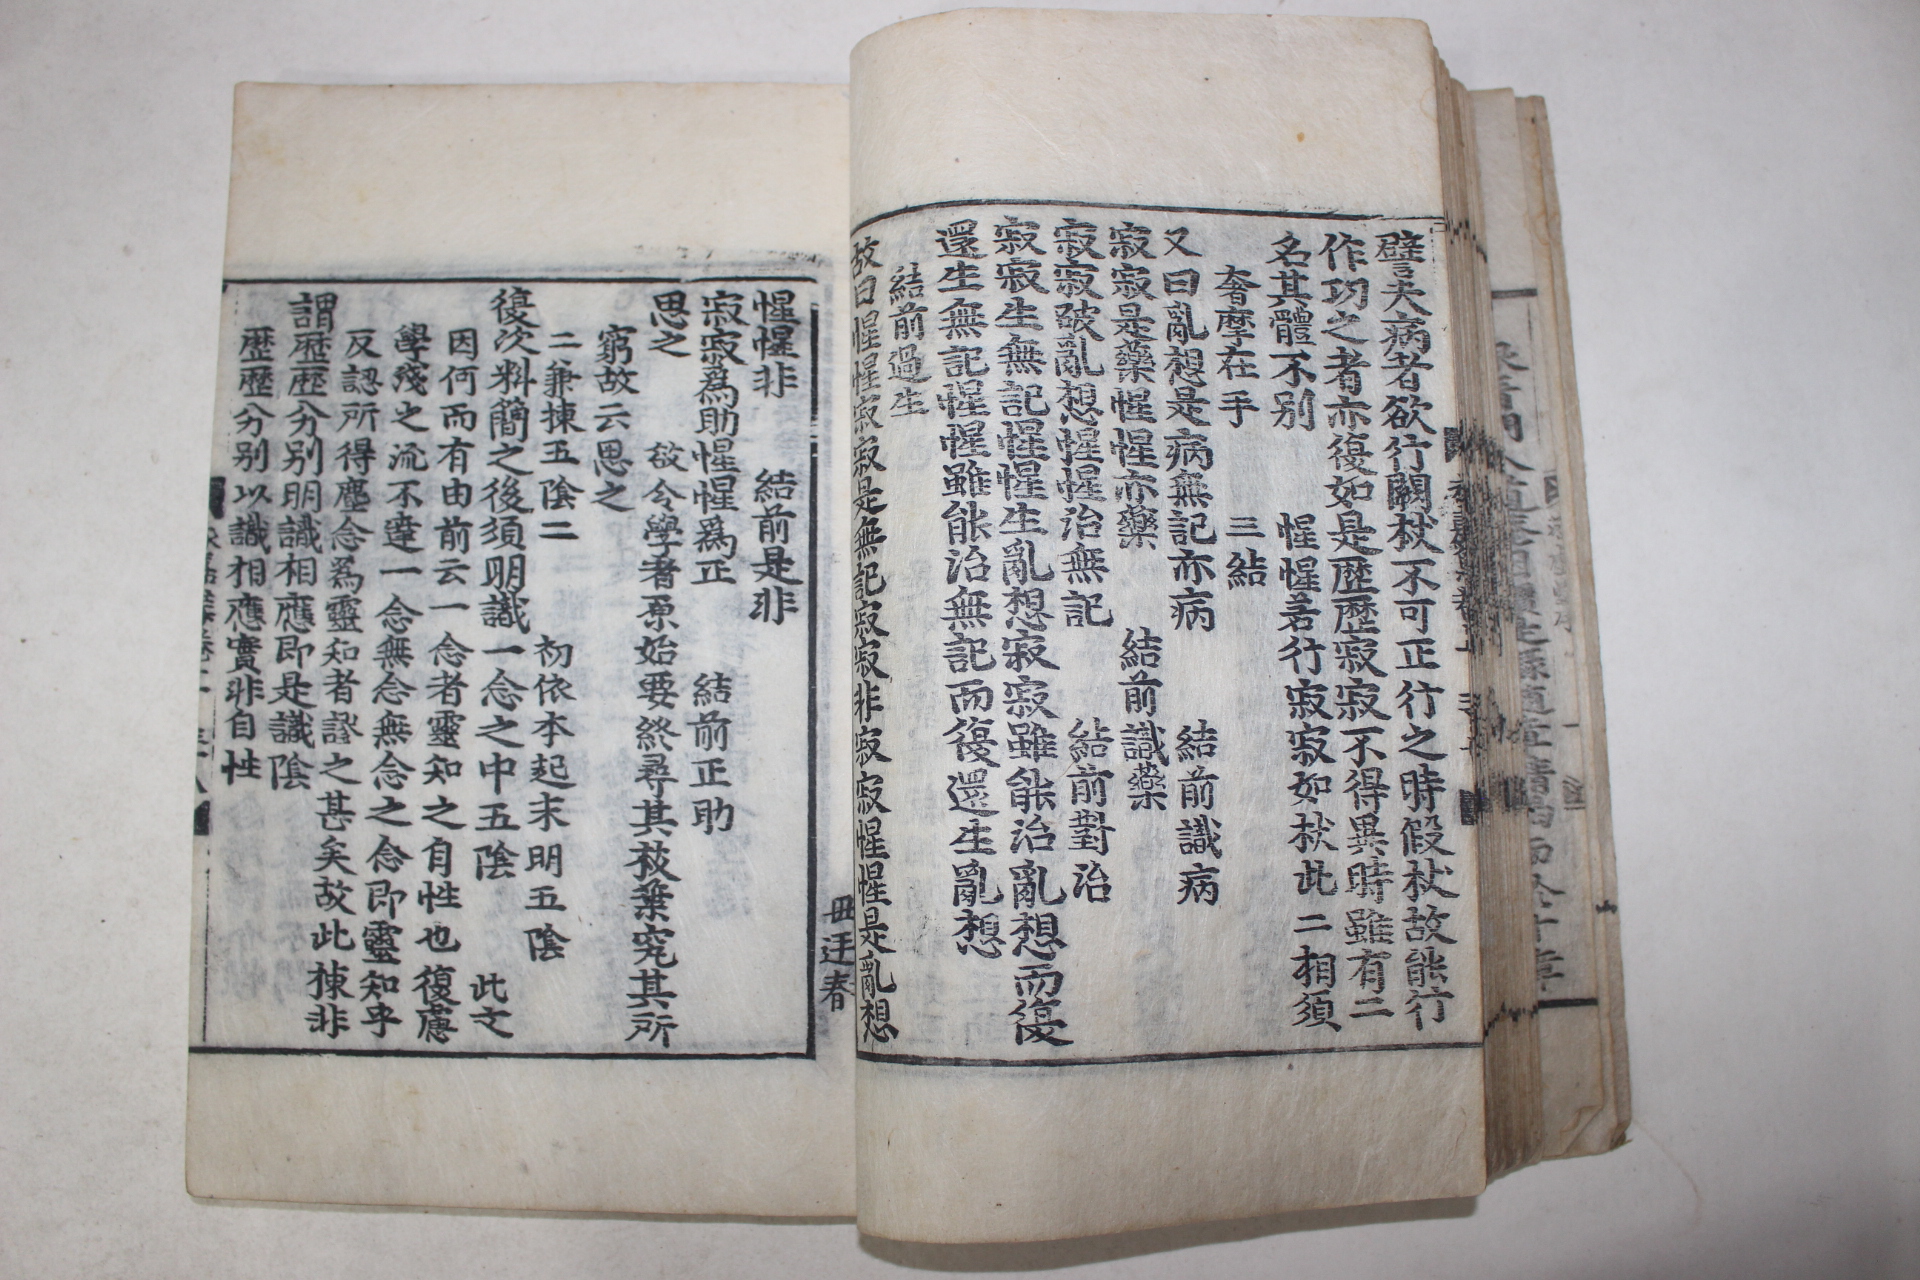 譬夫病者欲行闕杖不可正行之時假杖故能行
作功之者亦復如是歷歷寂寂不得異時雖有二
名其體不別　惺惺若行寂寂如杖此二相須
奢摩在手　三結
又曰亂想是病無記亦病　結前識病
寂寂是藥惺惺亦藥　結前識藥
寂寂破亂想惺惺治無記　結前對治
寂寂生無記惺惺生亂想寂寂雖能治亂想而復
還生無記惺惺雖能治無記而復還生亂想
結前過生
故曰惺惺寂寂是無記寂寂非寂寂惺惺是亂想
惺惺非　結前是非
寂寂爲助惺惺爲正　結前正助
思之　故令學者原始要終尋其枝葉究其所
窮故云思之
二兼揀五陰二　初依本起末明五陰
復次料簡之後須明識一念之中五陰　此文
因何而有由前云一念者靈知之自性也復慮
學淺之流不達一念無念無念之念即靈知乎
反認所得塵念爲靈知者謬之甚矣故此揀非
謂歷歷分別明識相應即是識陰
歷歷分別以識相應實非自性